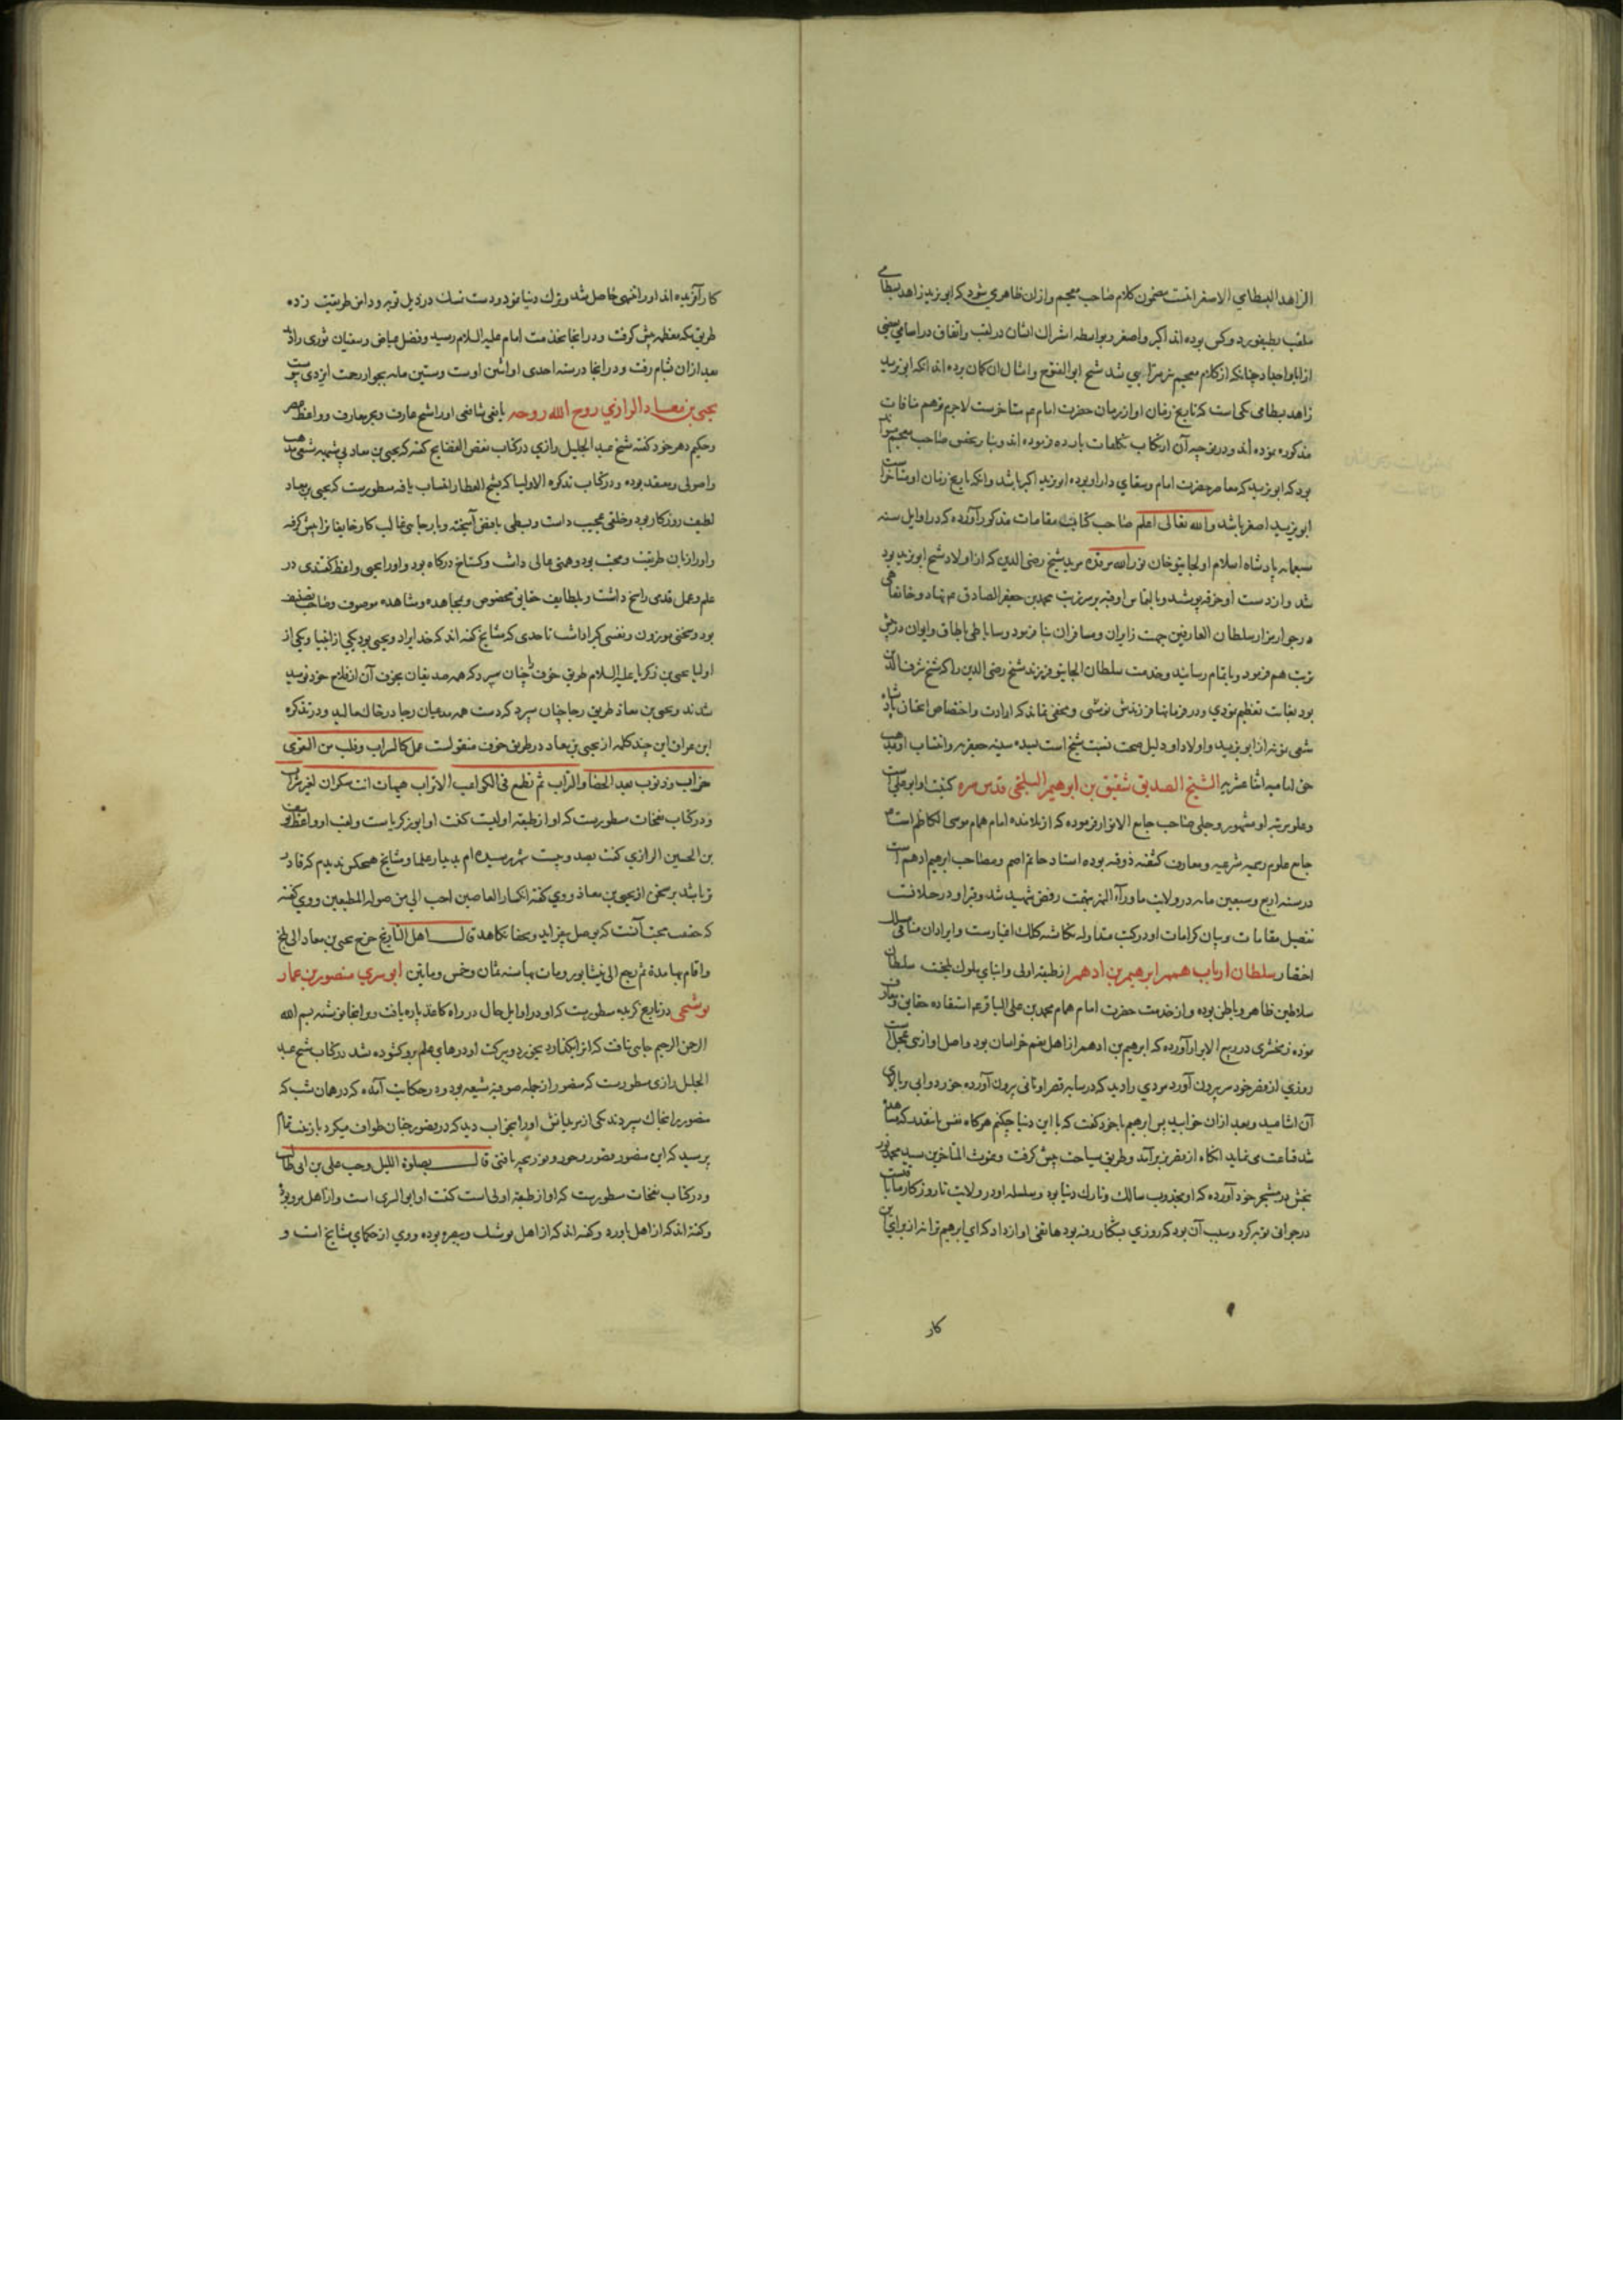 الزاهد البسطامي الاصغر انتهت مضمون کلام صاحب معجم وازان ظاهر می شود که ابو یزید زاهد بسطامی
ملقب بطیفور دو کس بوده اند اکبر واصغر و بواسطه اشتراک ایشان در لقب واتفاق در اسامی بعضی
از ابا واجداد چنانکه از کلام معجم شیخ ابو الفتوح وامثال ان کمان برده اند انکه ابو یزید
زاهد بسطامی یکی است که تاریخ زمان او از زمان حضرت امام عم متاخرست لاجرم توهم منافات
مذکوره نموده اند ودر توجیه آن ارتکاب تکلفات بارده فرموده اند وبنا بر نص صاحب معجم
بود که ابو یزید که معاصر حضرت امام وسقای دار او بوده ابو یزید اکبر باشد وانکه تاریخ زمان او متاخر است
ابو یزید اصغر باشد والله تعالی اعلم صاحب کتاب مقامات مذکور آورده که در اوایل سنه
سبعمایه پادشاه اسلام اولجایتو خان نور الله مرقده مرید شیخ رضی الدین که از اولاد شیخ ابو یزید بود
شد واز دست او خرقه پوشید وبالتماس او قبه بر سر تربت محمد بن جعفر الصادق عم نهاد وخانقاهی
در جوار مزار سلطان العارفین جهت زایران ومسافران بنا فرمود وساباطی باطاق وایوان در پیش
تربت هم فرمود وباتمام رسانید وخدمت سلطان الجایتو فرزند شیخ رضی الدین را که شیخ شرف الدین
بود بغایت تعظیم نمودی ودر فرمانها فرزندش نوشتی ومخفی نماند که ارادت واختصاص انچنان پادشاه
شیعی نسبت از ابو یزید واولاد او دلیل صحت نسبت شیخ است بسده سنیه جعفریه وانتساب او بمذهب
حق امامیه اثنا عشریه الشیخ الصدیق شقیق بن ابرهیم البلخی قدس سره کنیت او ابو علی است
وعلو مرتبه او مشهور وجلی صاحب جامع الانوار فرموده که از تلامذه امام همام موسی الکاظم است
جامع علوم رسمیه شرعیه ومعارف کشفیه ذوقیه بوده استاد حاتم اصم ومصاحب ابرهیم ادهم است
در سنه اربع وسبعین مایه در ولایت ماوراء النهر بتهمت رفض شهید شد وقبر او در ختلانست
تفصیل مقامات وبیان کرامات او در کتب متداوله نکاشته کلک اخبارست وایراد ان منافی مسلک
اختصار سلطان ارباب همم ابرهیم بن ادهم از طبقه اولی وابنای ملوک بلخست سلطان
سلاطین ظاهر وباطن بوده واز خدمت حضرت امام همام محمد بن علی الباقر عم استفاده حقایق ومعارف
نموده زمخشری در ربیع الابرار آورده که ابرهیم بن ادهم از اهل نعم خراسان بود واصل او از بنی عجل است
روزی از قصر خود سر بیرون آورد مردی را دید که در سایه قصر او نانی بیرون آورده خورد وابی بر بالای
آن اشامید وبعد ازان خوابید پس ابرهیم باخود کفت که با این دنیا چکنم هرکاه نفس بانقدر که مشاهده
شد قناعت می نماید انکاه از قصر بزیر آمد وطریق سیاحت پیش کرفت وغوث المتاخرین سید محمد نور
بخش در مشجر خود آورده که او مجذوب سالک وتارک دنیا بود وسلسله او در ولایت تا روزکار ما باقیست
در جوانی توبه کرد وسبب آن بود که روزی بشکار رفته بود هاتفی اواز داد که ای ابرهیم ترا نه از برای این
کار
کار آفریده اند اورا تنبهی حاصل شد وترک دنیا نمود ودست تمسک در ذیل توبه ودامن طریقت زده
طریق مکه معظمه پیش کرفت ودر انجا بخدمت امام علیه السلام رسید وفضیل عیاض وسفیان ثوری را دید
بعد ازان بشام رفت ودر انجا در سنه احدی او اثنین اوست وستین مایه بجوار رحمت ایزدی پیوست
یحیی بن معاد الرازی روح الله روحه یافعی شافعی اورا شیخ عارف وبحر معارف وواعظ عصر
وحکیم دهر خود کفته شیخ عبد الجلیل رازی در کتاب نقض الفضایح کفته که یحیی بن معاد بی شبهه شیعی مذهب
واصولی ومعتقد بوده ودر کتاب تذکره الاولیا که بشیخ العطار انتساب یافته مسطورست که یحیی بن معاد
لطیف روزکار بود وخلقی عجیب داشت وبسطی باقبض آمیخته وبا رجایی غالب کار خایفانرا پیش کرفته
واورا زبان طریقت ومحبت بود وهمتی عالی داشت وکستاخ درکاه بود واورا یحیی واعظ کفتندی در
علم وعمل قدمی راسخ داشت وبلطایف حقایق مخصوص وبمجاهده ومشاهده موصوف وصاحب تصنیف
بود وسخنی موزون ونفسی کیرا داشت تا حدی که مشایخ کفته اند که خدایرا دو یحیی بود یکی از انبیا ویکی از
اولیا یحیی بن زکریا علیه السلام طریق خوف را چنان سپرد که همه صدیقان بخوف آن از فلاح خود نومید
شدند ویحیی بن معاذ طریق رجا چنان سپرد که دست همه مدعیان رجا در خاک مالید ودر تذکره
ابن عراق این چند کلمه از یحیی بن معاد در طریق خوف منقولست عمل کالسراب وقلب من التقوی
خراب وذنوب بعدد الحصا والتراب ثم تطمع فی الکواعب الاتراب هیهات انت سکران بغیر شراب
ودر کتاب نفحات مسطورست که او از طبقه اولیست کنیت او ابو زکریاست ولقب او واعظ یوسف
بن الحسین الرازی کفت بصد وبیست شهر رسیده ام بدیدار علما ومشایخ هیچکس ندیدم که قادر
تر باشد بر سخن از یحیی بن معاذ ووی کفته انکسار العاصین احب الی من صولة المطیعین ووی کفته
که حقیقت محبت آنست که بوصل نیفزاید وبجفا نکاهد قال اهل التاریخ خرج یحیی بن معاد الی بلخ
واقام بها مدة ثم رجع الی نیشابور ومات بها سنه ثمان وخمس وماتین ابو سری منصور بن عمار
بوشنجی در تاریخ کزیده مسطورست که او در اوایل حال در راه کاغذ پاره یافت ودر انجا نوشته بسم الله
الرحمن الرحیم جایی نیافت که انرا بکذارد بخورد وببرکت او درهای علم برو کشوده شد در کتاب شیخ عبد
الجلیل رازی مسطورست که منصور از جمله صوفیه شیعه بود ودر حکایت آمده که در همان شب که
منصور را بخاک سپردند یکی از مریدانش اورا بخواب دید که در قصور جنان طواف میکرد با زینت تمام
پرسید که این منصور قصور وحور ونور بچه یافتی قال بصلوة اللیل وحب علی بن ابی طالب
ودر کتاب نفحات مسطورست که او از طبقه اولی است کنیت او ابو السری است واز اهل مرو بود
وکفته اند که از اهل باورد وکفته اند که از اهل بوشنک وببصره بوده ووی از حکمای مشایخ است و